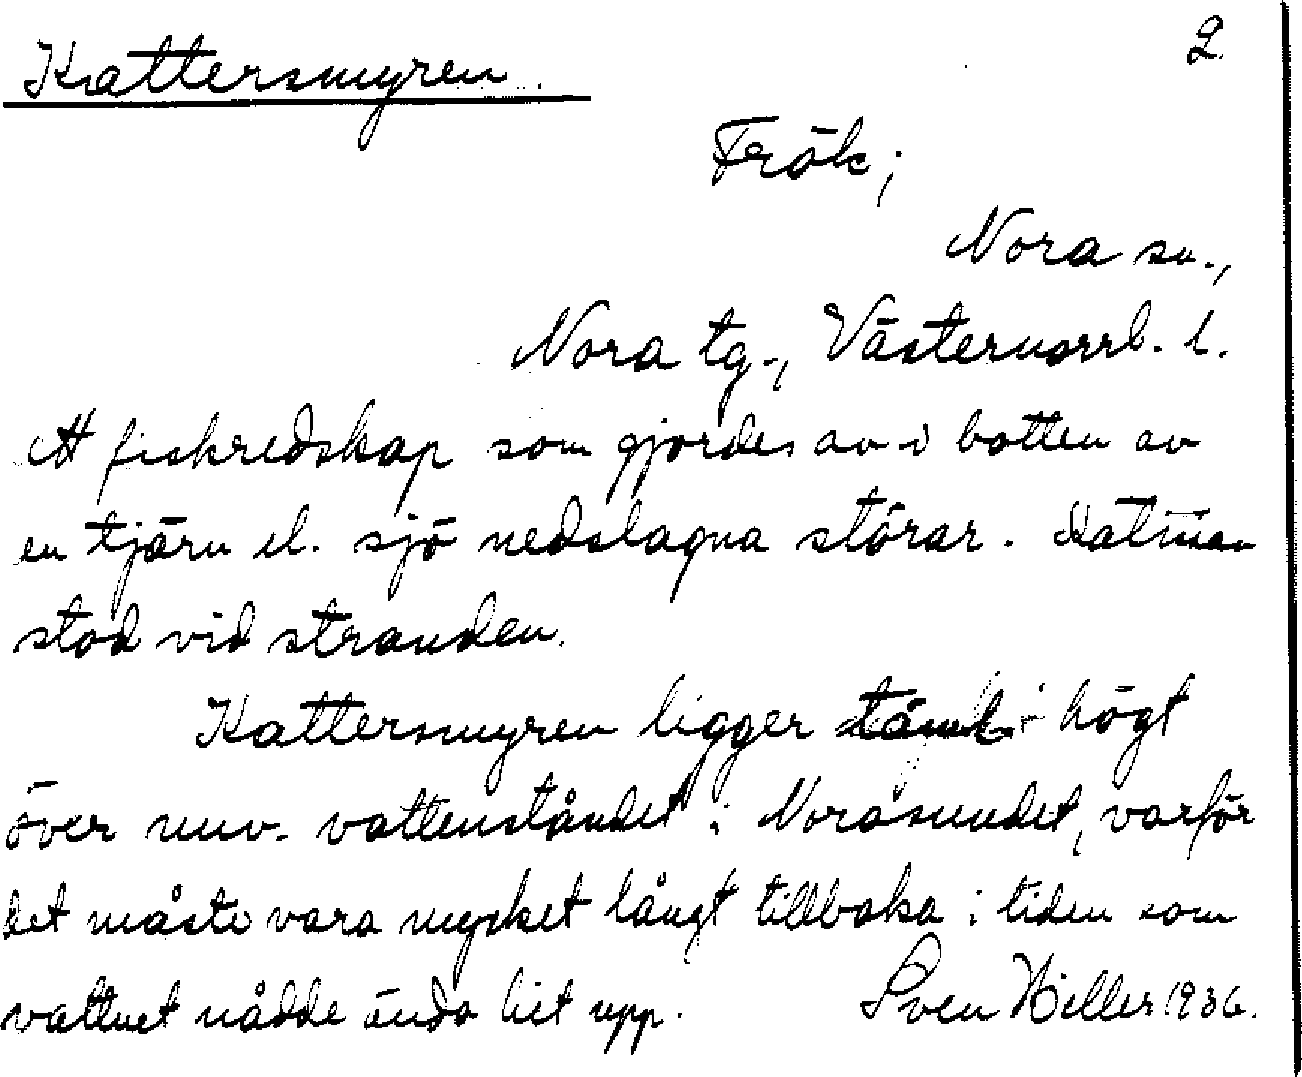 Kattersmyren.
2
Frök;
Nora sn.,
Nora tg., Västernorrl. l.
Ett fiskredskap som gjordes av i botten av
en tjärn el. sjö nedslagna störar. Katsan
stod vid stranden.
Kattersmyren ligger högt
över nuv. vattenståndet i Norasundet, varför
det måste vara mycket långt tillbaka i tiden som
vattnet nådde ända hit upp. Sven Hiller 1936.